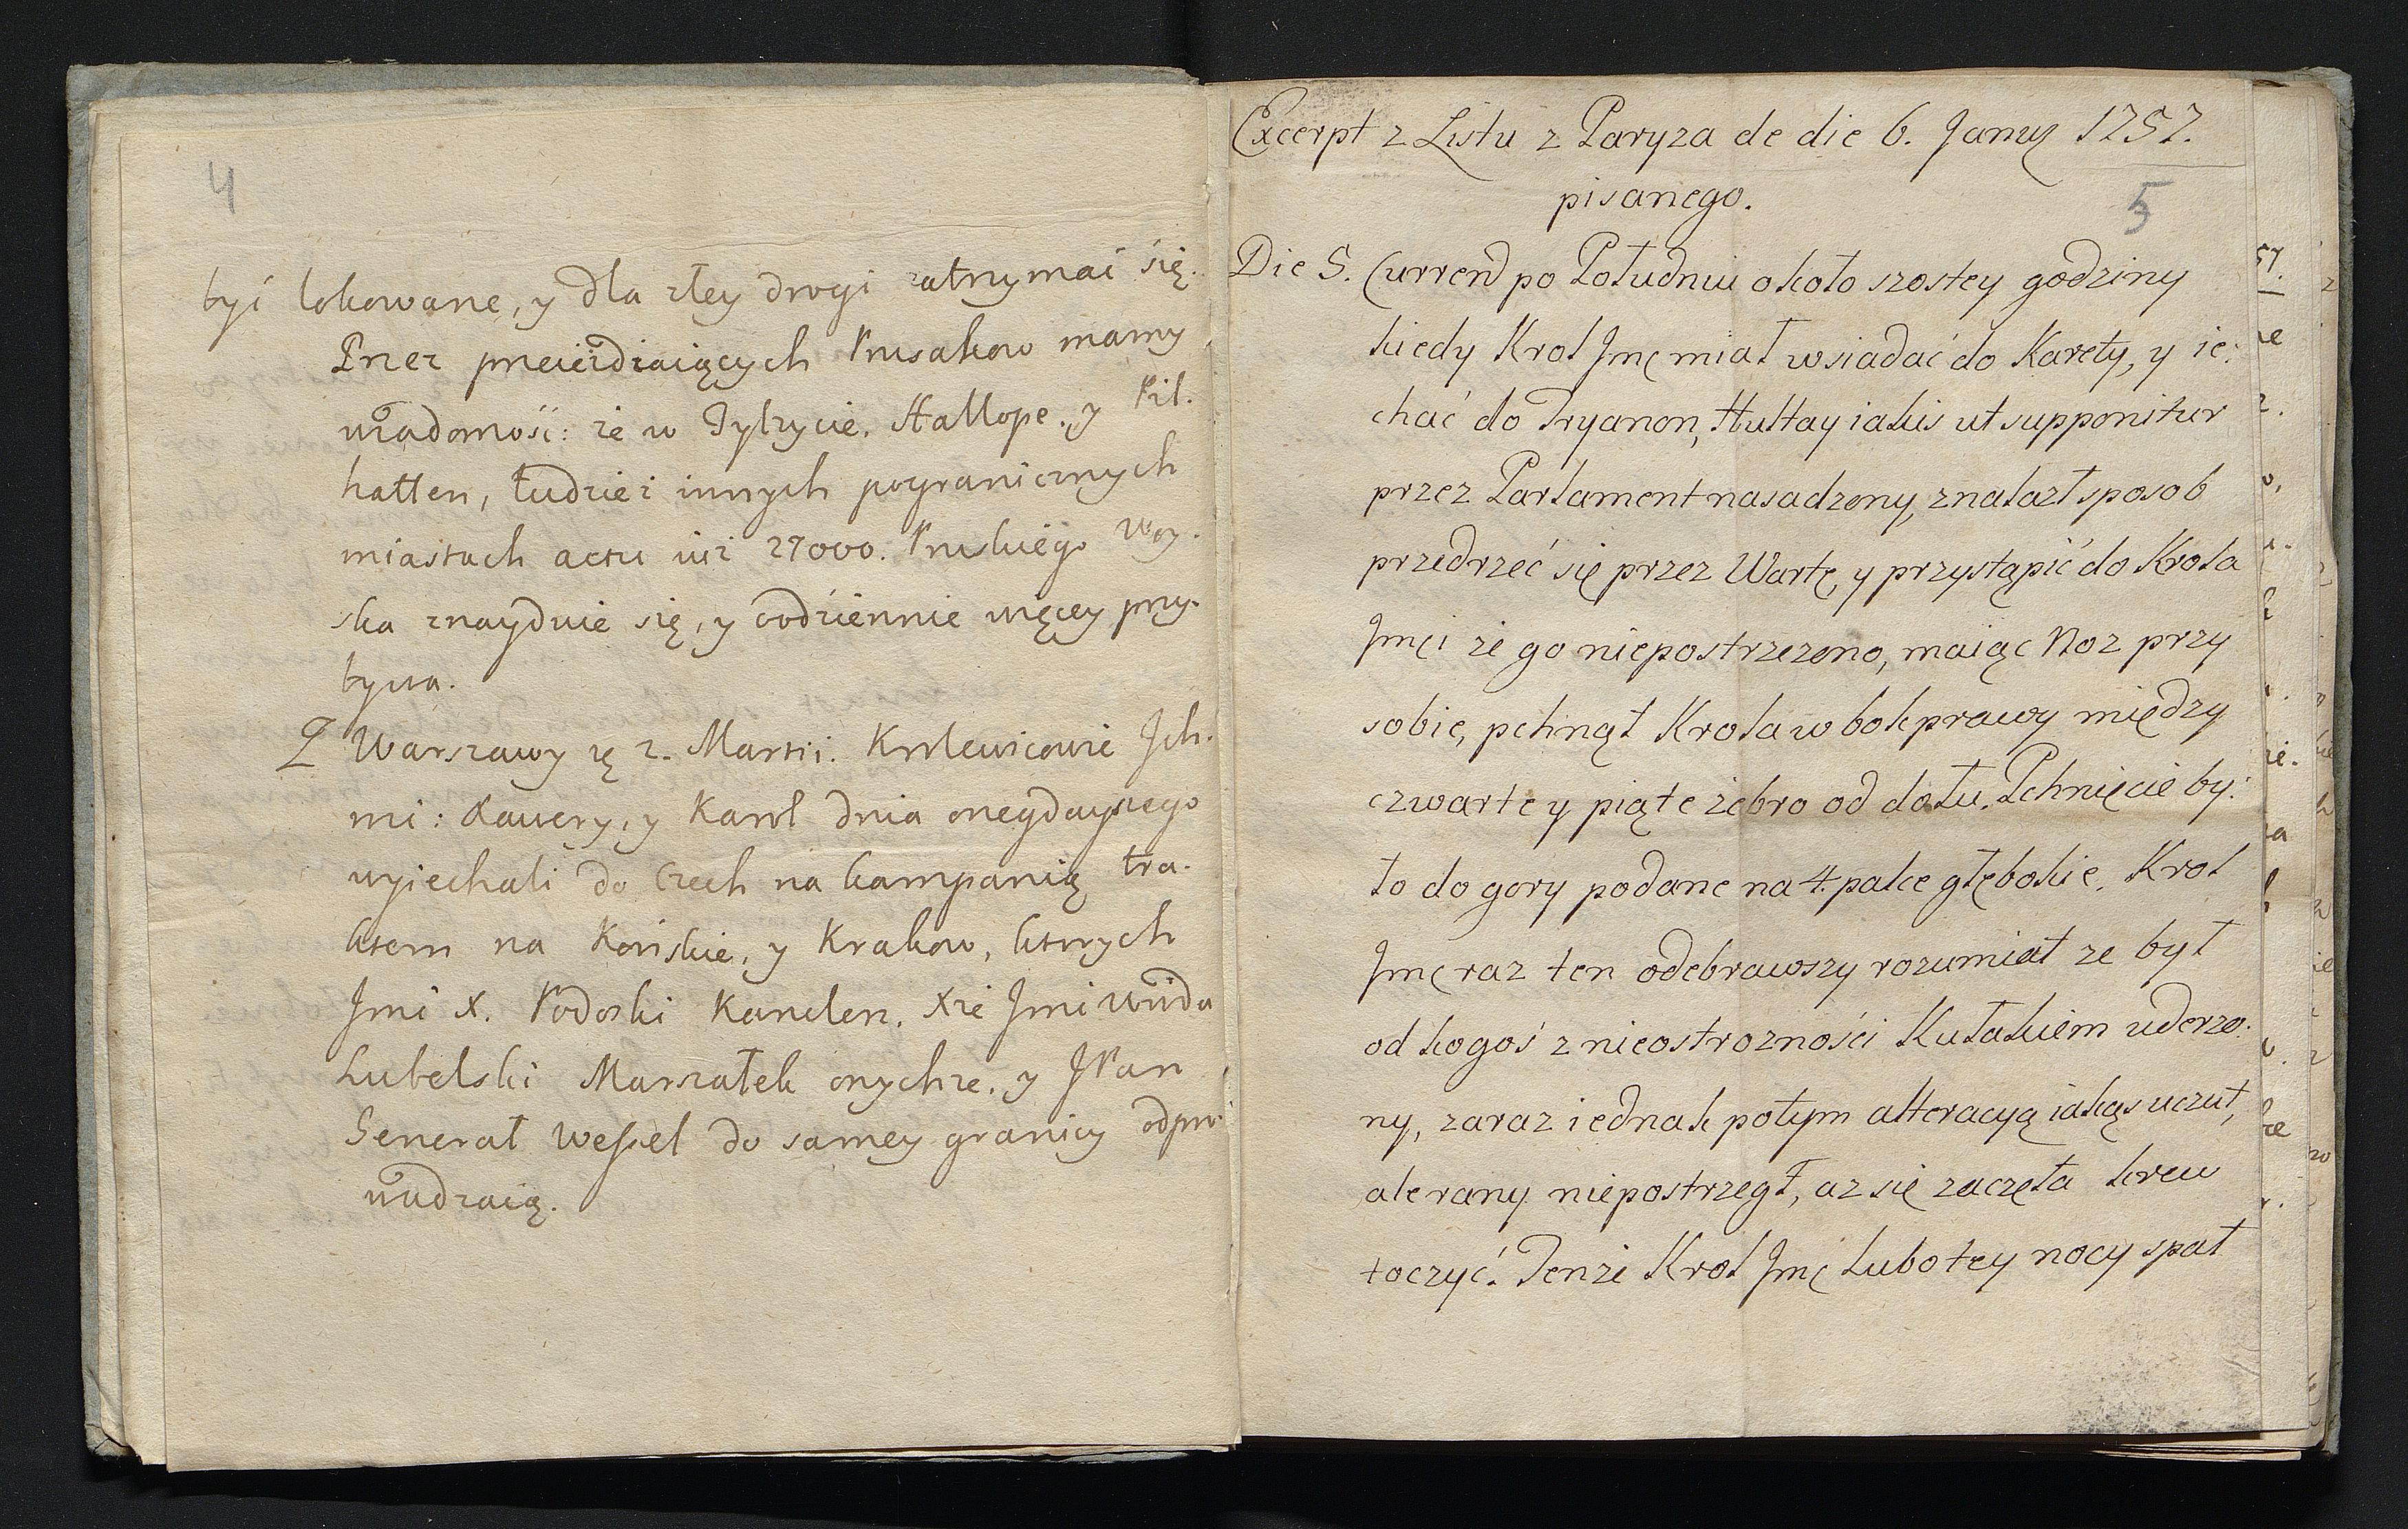 4
byi lokowane, y dla złey drogi zatrzymai się.
Przez przeieżdziaiących Prusakow mamy
wiadomość: że w Tylzycie, Stallope, y Pil.
katten, tudzież innych pogranicznych
miastach actu iuż 27000. Pruskiego Woy.
ska znayduie się, y codziennie więcey przy.
bywa.
Z Warszawy 2. Martii. Krolewicowie Jch.
mi: Xawery, y Karol dnia onegdayszego
wyiechali do Czech na kampanią tra.
ktem na Końskie, y Krakow, ktorych
Jmć X. Podoski Kanclerz. Xże Jmć Wwda
Lubelski Marszałek onychże, y JPan
Generał Wessel do samey granicy odpro
wadzaią.
Excerpt z Listu z Paryza de die 6. Januar 1757.
pisanego.
5
Die 5. Curren po Południu około szostey godziny
kiedy Krol Jmć miał wsiadać do Karety, y ie:
chać do Tryanon, Hultay iakis ut supponitur
przez Parlament nasadzony, znalazł sposob
przedrzeć się przez Wartę, y przystąpić do Krola
Jmći że go niepostrzezono, maiąc Noz przy
sobie, pchnął Krola w bok prawy między
czwarte y piąte żebro od dołu. Pchnięcie by:
ło do gory podane na 4. palce głębokie. Krol
Jmć raz ten odebrawszy rozumiał ze był
od kogoś z nieostrozności Kułakiem uderzo.
ny, zaraz iednak potym alteracyą iakąs uczuł,
ale rany niepostrzegł, az się zaczęła krew
toczyć. Tenże Krol Jmć lubo tey nocy spał